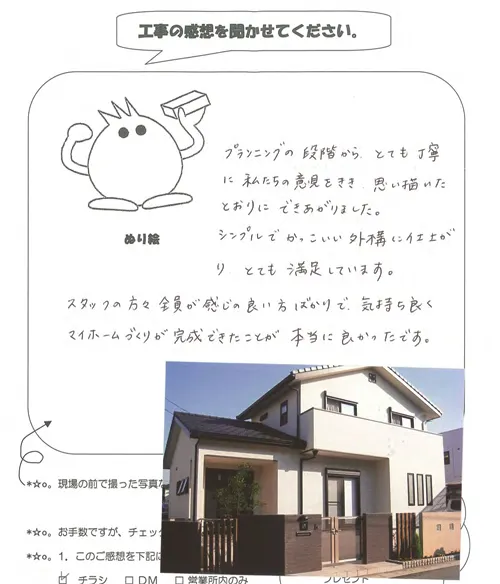 工事の感想を聞かせてください。
プランニングの段階から、とても丁寧
に私たちの意見をきき、思い描いた
とおりにできあがりました。
シンプルでかっこいい外構に仕上が
り、とても満足しています。
ぬり絵
スタッフの方々全員が感じの良い方ばかりで、気持ち良く
マイホームづくりが完成できたことが本当に良かったです。
*☆o。現場の前で撮った写真な
*☆o。お手数ですが、チェッ
*☆o。1、このご感想を下記に
☑ チラシ □DM □営業所内のみ
プレゼント